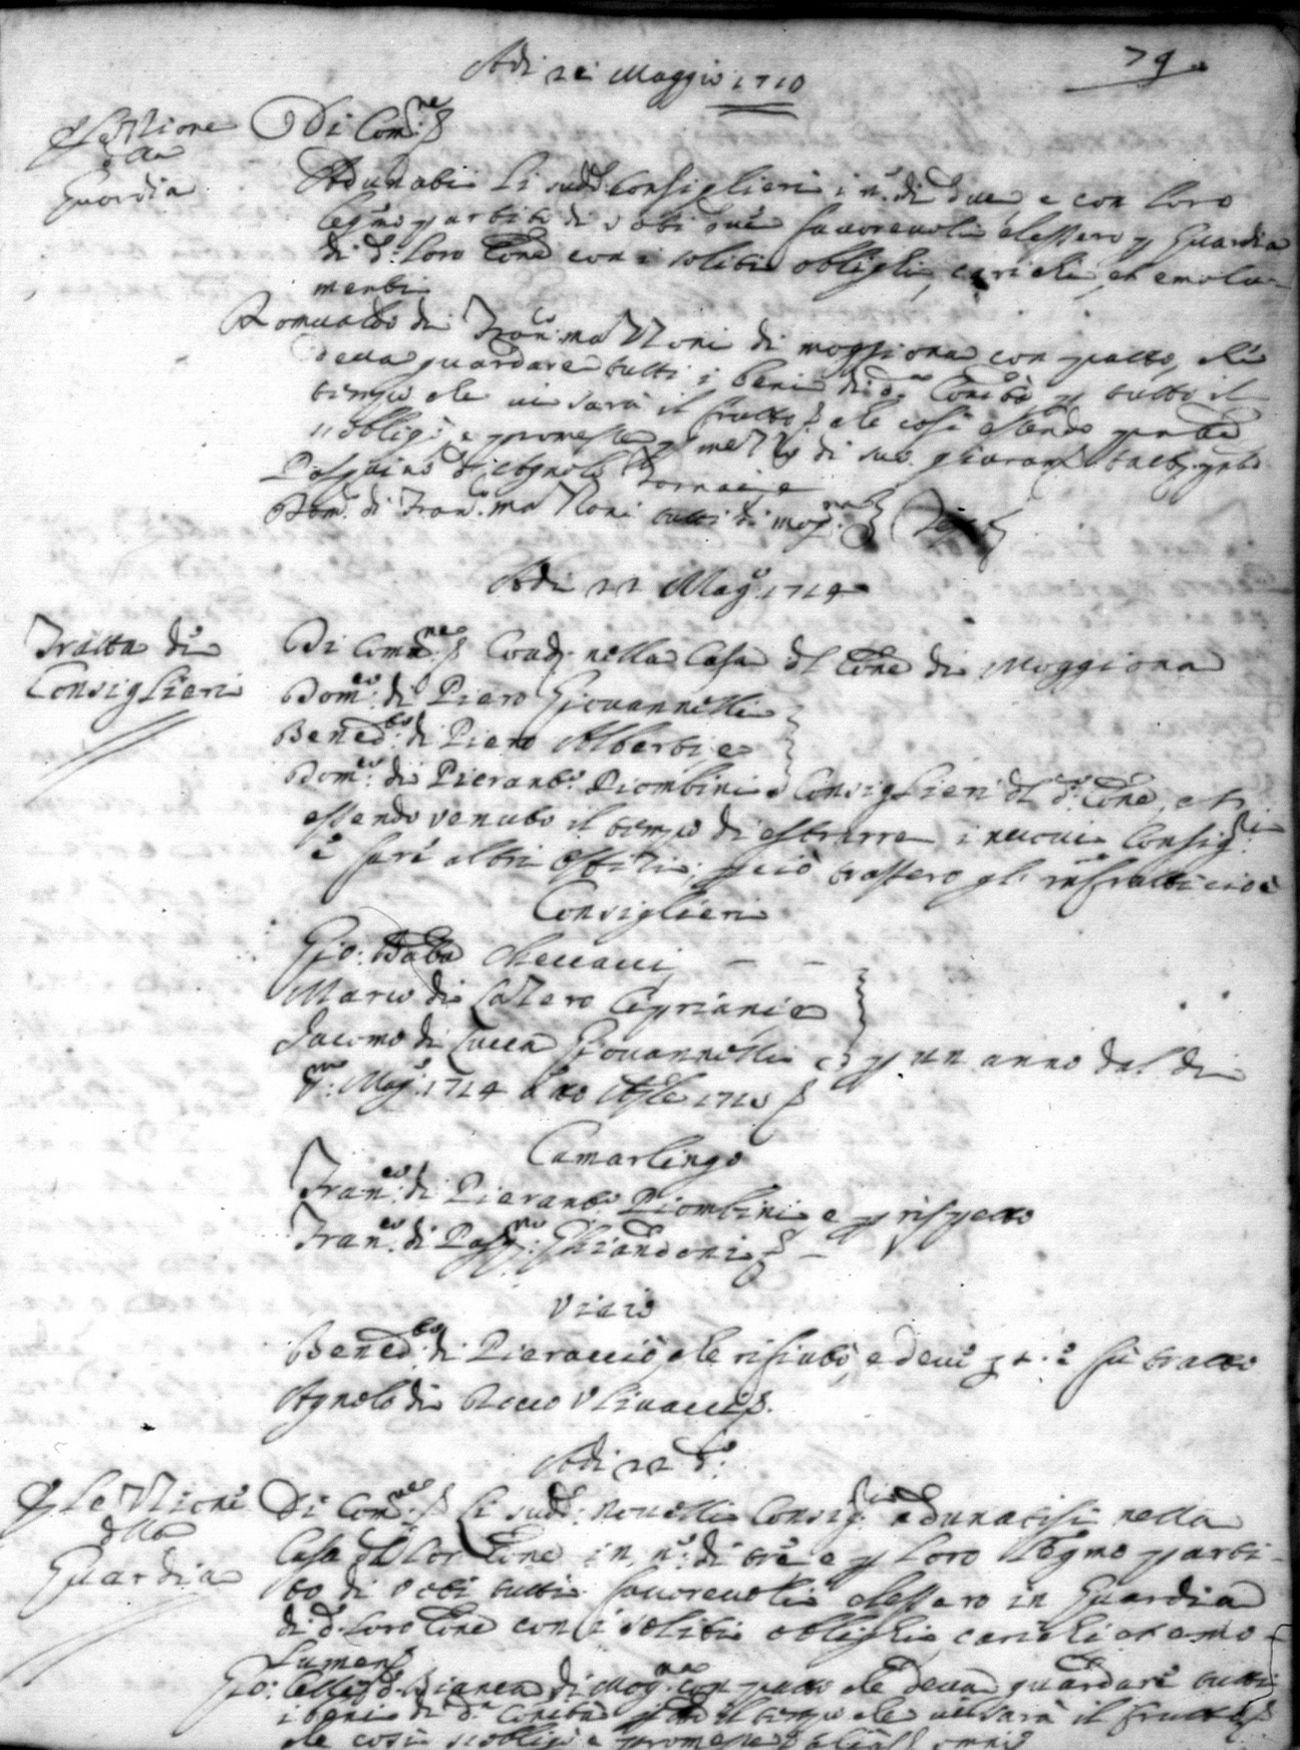 79
Adi 21 Maggio 1710
Elezzione
della
Guardia
Di Com:ne
Adunati li sudd: Consiglieri i n:o di due, e con loro
legmo partito di voti due favorevoli elessero p Guardia
di d: loro Cone con i soliti oblighi, carichi, et emolu-
menti
Romualdo di Fran:co Mazzoni di moggiona con patto, che
deva guardare tutti i beni di d:a Comtà p tutto il
tempo che vi sarà il frutto che così essendo
si obligò e promesse p mezzo di suo
Pasquino d'Agnolo Fornai, e
Dom:o di Fran: mazzoni tutti di mog:na
Adi 22 Mag:o 1714
Tratta di
Consiglieri
Di Comne: Coad: nella Casa dl Cone di Moggiona
Dom:co di Piero Giovannelli
Bened:to di Piero Alberti e
Dom:co di Pieranto: Piombini Consiglieri dl d: Cone, et
essendo venuto il tempo di estrarre i nuovi Consig:ri
e fare altri Offizi, pciò trassero gl' infratti cioè
Consiglieri
Gio: Batta Checcacci
Marco di Lazero Cipriani e
Jacomo di Lucca Giovannelli p un anno dal dì
pmo: Mag:o 1714
Camarlingo
Fran:co di Pieranto Piombini e p rispetto
Fran:co di Pasq:no Ghiandoni
Vicio
Bened:to di Pieraccio che rifiutò, e fù tratto
Agnolo di Rocco Vlivacci
Adi 22 d:o
Elezzione
della
Guardia
Di Com:ne li sudd: novelli Consig:ri adunatisi nella
Casa dl lor Cone in n:o di tre e p loro legmo parti-
to di voti tutti favorevoli elessero in Guardia
di d: loro Cone con i soliti oblighi carichi et emo-
lumenti
Gio: di Mog:na con patto che deva guardare tutti
i beni di d:a Comtà p tto il tempo che vi sarà il frutto
che così si obligò e promesse